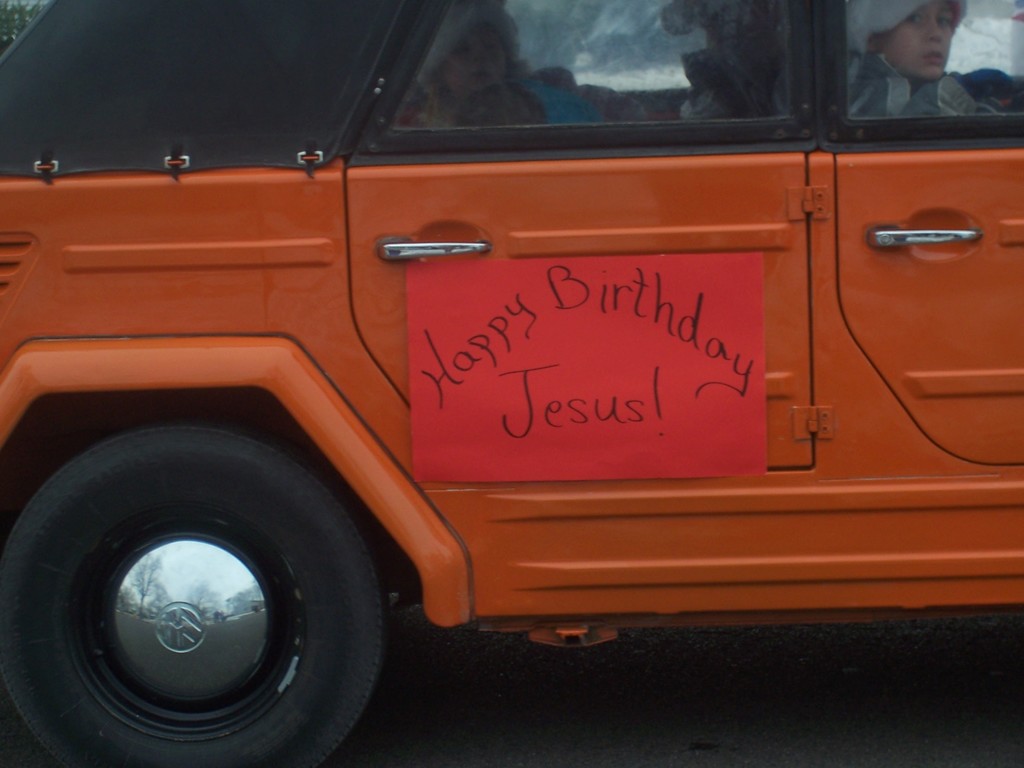 Happy Birthday
Jesus!